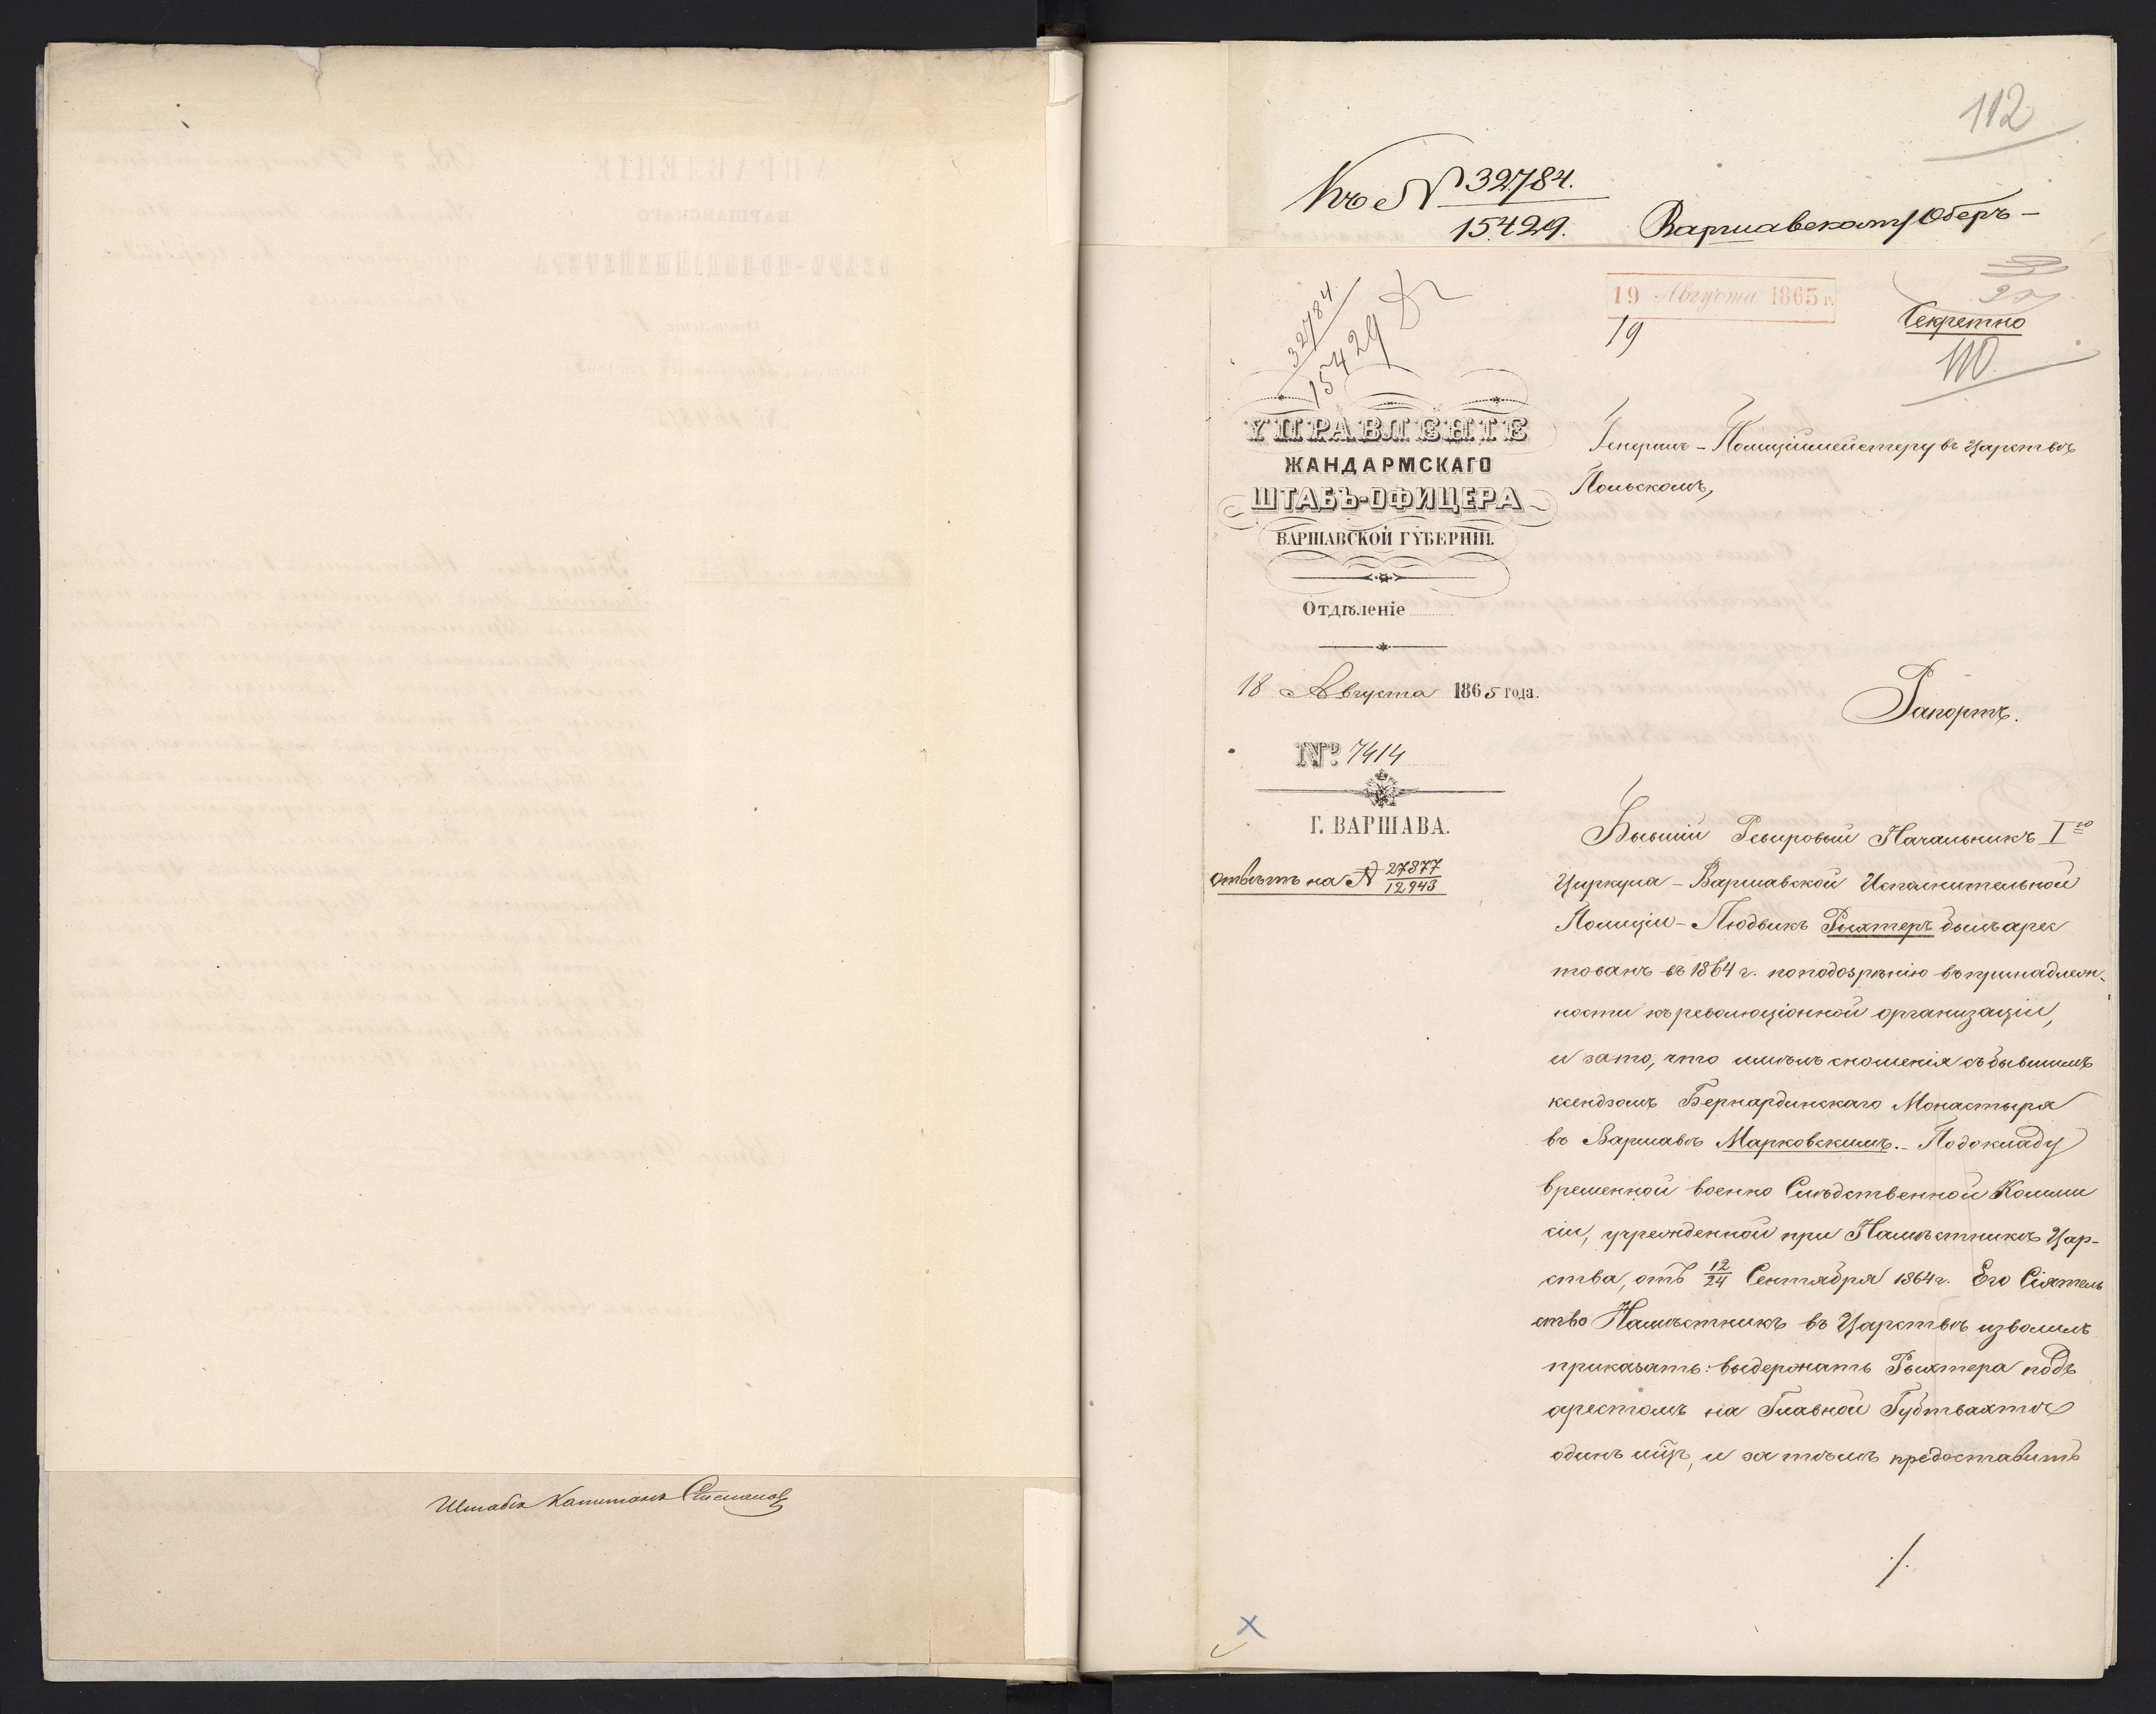 Штабсъ Капитанъ Степановъ
112
Къ № 32784.
15429.
Варшавскому Оберъ-
32784
15429
19 Августа 1865 г.
19
Секретно
110
УПРАВЛЕНІЕ
ЖАНДАРМСКАГО
ШТАБЪ-ОФИЦЕРА
ВАРШАВСКОЙ ГУБЕРНІИ.
Отдѣленіе
18 Августа 1865 года.
№ 7414
Г. ВАРШАВА.
отвѣтъ на № 27877
12943
Генералъ-Полиціймейстеру въ Царствѣ
Польскомъ,
Рапортъ.
Бывшій Ревировый Начальникъ I го
Циркула - Варшавской Исполнительной
Полиціи - Людвикъ Рыхтеръ былъ арес
тованъ въ 1864 г. по подозрѣнію въ принадлеж-
ности къ революціонной организаціи,
и за то, что имѣлъ сношенія съ бывшимъ
ксендзомъ Бернардинскаго Монастыря
въ Варшавѣ Марковскимъ. - По докладу
временной военно Слѣдственной Комми
сіи, учрежденной при Намѣстникѣ Цар-
ства, отъ 12/24 Сентября 1864 г. Его Сіятель
ство Намѣстникъ въ Царствѣ изволилъ
приказать: выдержать Рыхтера подъ
арестомъ на Главной Губтвахтѣ
одинъ мѣц, и за тѣмъ предоставить
./.